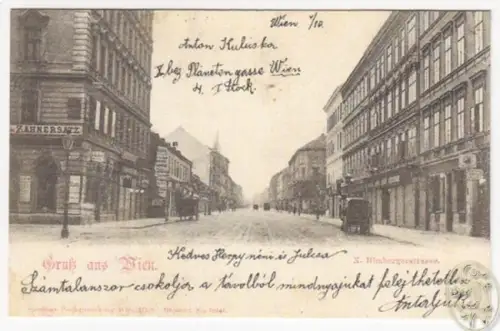 Wien 1/10
Anton Kuluska
II. bez Planetengasse Wien
4. I Stock.
ZAHNERSATZ
Gruß aus Wien.
X. Nimburgerstrasse.
Kedves Hornynéni és Julcsa
Számtalanszor csokolja a távolból mindnyájukat felejthetetlen
Antaljuk